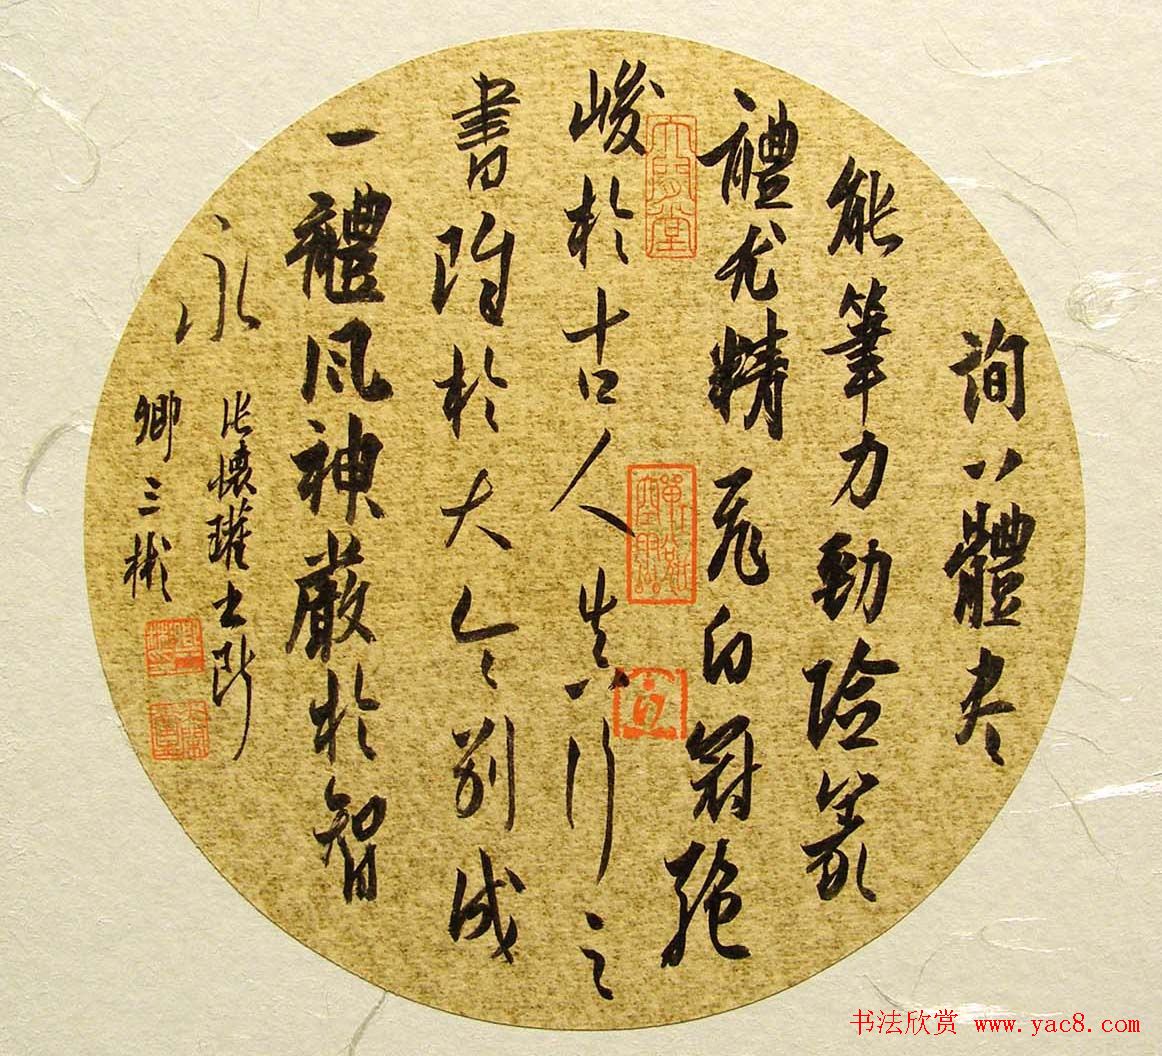 詢八體盡
能筆力勁險篆
體尤精飛白冠絕
峻於古人真行之
書雖於大令別成
一體風神嚴於智
永
張懷瓘書斷
卿三彬
书法欣赏 www.yac8.com